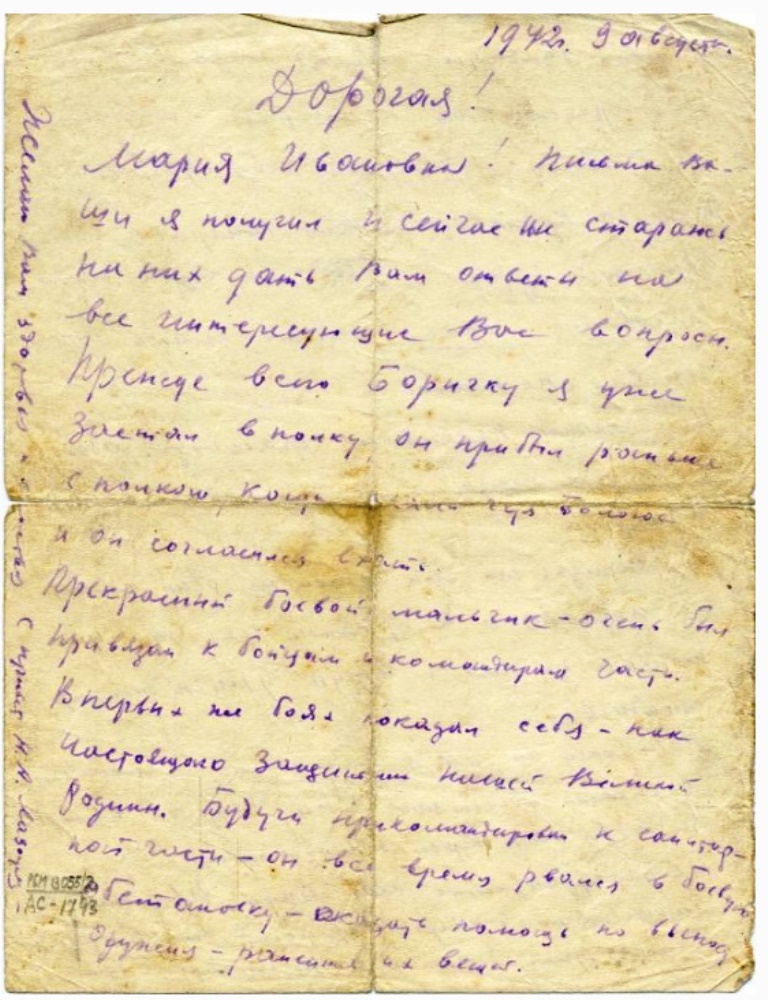 1942г. 9 августа.
Дорогая!
Мария Ивановна! Письма Ва-
ши я получил и сейчас же стараюсь
на них дать Вам ответы на
все интересующие Вас вопросы.
Прежде всего Боричку я уже
застал в полку, он прибыл раньше
с полком,
и он согласился ехать.
Прекрасный боевой мальчик – очень был
привязан к бойцам и командирам части.
В первых же боях показал себя – как
настоящего защитника нашей Великой
Родины. Будучи прикомандирован к санитар-
ной части – он все время рвался в боевую
обстановку – оказать помощь по выносу
оружия – раненых их вещей.
Желаю Вам здоровья и с прив. Н. А.
РБМ 8055/2
АС-1793